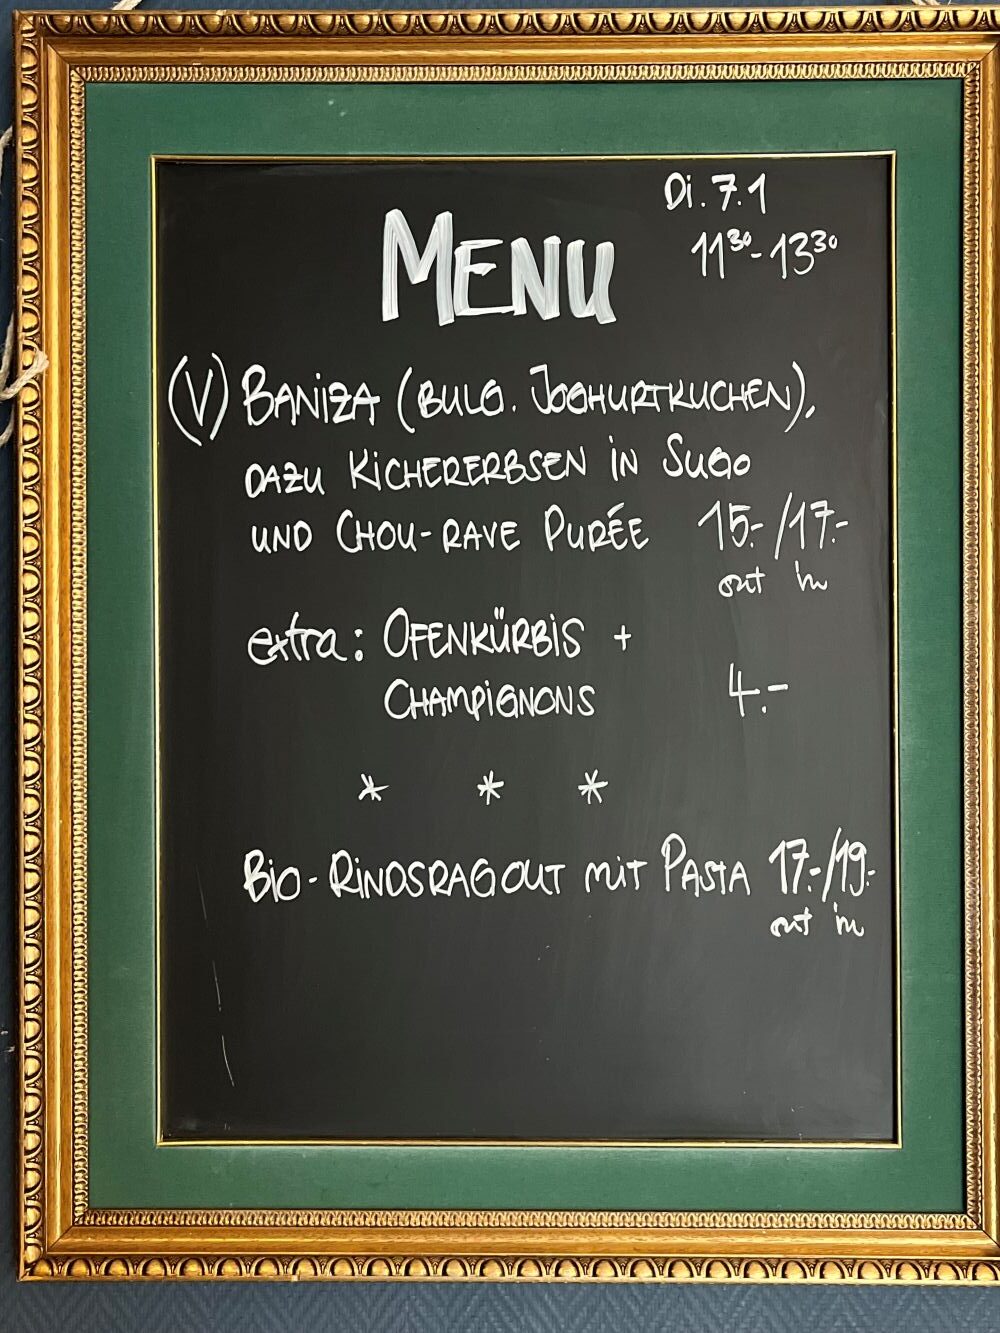 Di. 7.1
11³⁰-13³⁰
MENU
(V) BANIZA (BULG. JOGHURTKUCHEN),
DAZU KICHERERBSEN IN SUGO
UND CHOU-RAVE PURÉE 15.-/17.-
out in
extra: OFENKÜRBIS +
CHAMPIGNONS 4.-
* * *
BIO-RINDSRAGOUT MIT PASTA 17.-/19.-
out in